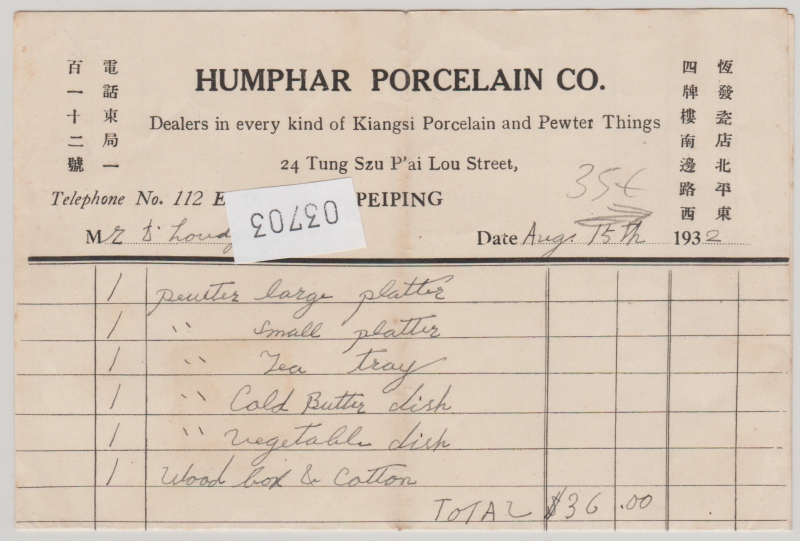 電話東局一
百一十二號
恆發瓷店北平東
四牌樓南邊路西
HUMPHAR PORCELAIN CO.
Dealers in every kind of Kiangsi Porcelain and Pewter Things
24 Tung Szu P'ai Lou Street,
35¢
Telephone No. 112 E
PEIPING
03703
Mr
Date Aug. 15th 1932
1 pewter large platter
1 " small platter
1 " Tea tray
1 " Cold Butter dish
1 " vegetable dish
1 Wood box & Cotton
TOTAL $36.00